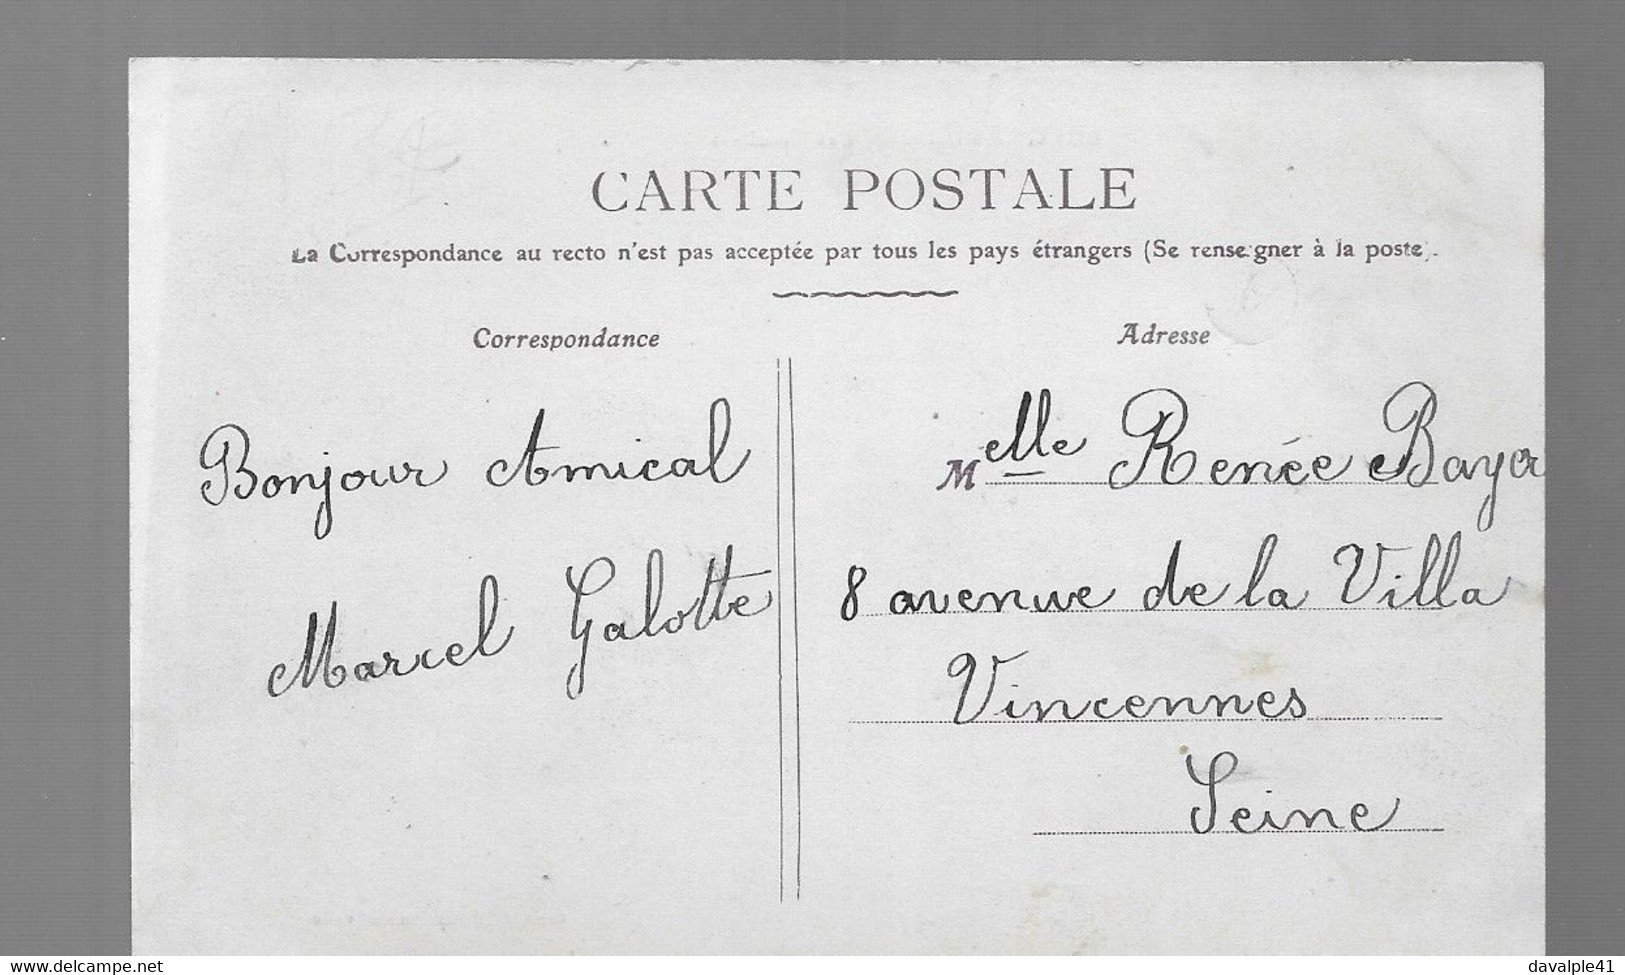 CARTE POSTALE
La Correspondance au recto n'est pas acceptée par tous les pays étrangers (Se renseigner à la poste).
Correspondance
Adresse
Bonjour Amical
Marcel Galotte
Melle Renée Baya
8 avenue de la Villa
Vincennes
Seine
delcampe.net
davalple41